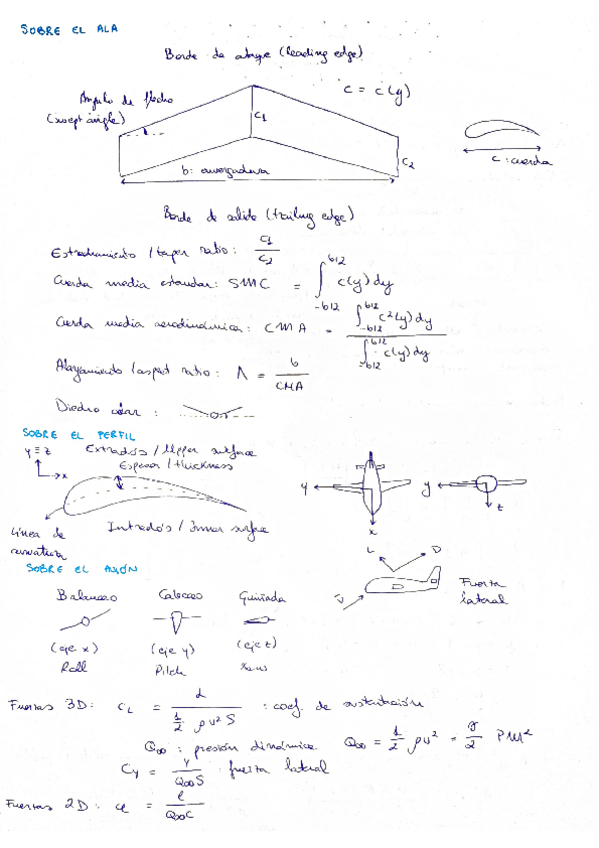 SOBRE EL ALA
Borde de ataque (leading edge)
Ángulo de flecha
(swept angle)
c = c(y)
C1
C2
b: envergadura
c: cuerda
Borde de salida (trailing edge)
Estrechamiento / taper ratio: C1/C2
Cuerda media estandar: SMC = ∫_{-b/2}^{b/2} c(y) dy
Cuerda media aerodinámica: CMA = ∫_{-b/2}^{b/2} c²(y) dy / ∫_{-b/2}^{b/2} c(y) dy
Alargamiento / aspect ratio: Λ = b/CMA
Diedro :
SOBRE EL PERFIL
y ≡ z
x
Extradós / Upper surface
Espesor / thickness
Línea de
curvatura
Intradós / Inner surface
y
x
y
z
SOBRE EL AVIÓN
L
D
Fuerza
lateral
Balanceo Cabeceo Guiñada
(eje x) (eje y) (eje z)
Roll Pitch Yaw
Fuerzas 3D: CL = L / ½ ρ v² S : coef. de sustentación
Q∞ : presión dinámica Q∞ = ½ ρ v² = γ/2 P M²
Cy = Y / Q∞ S : fuerza lateral
Fuerzas 2D: cl = l / Q∞ c